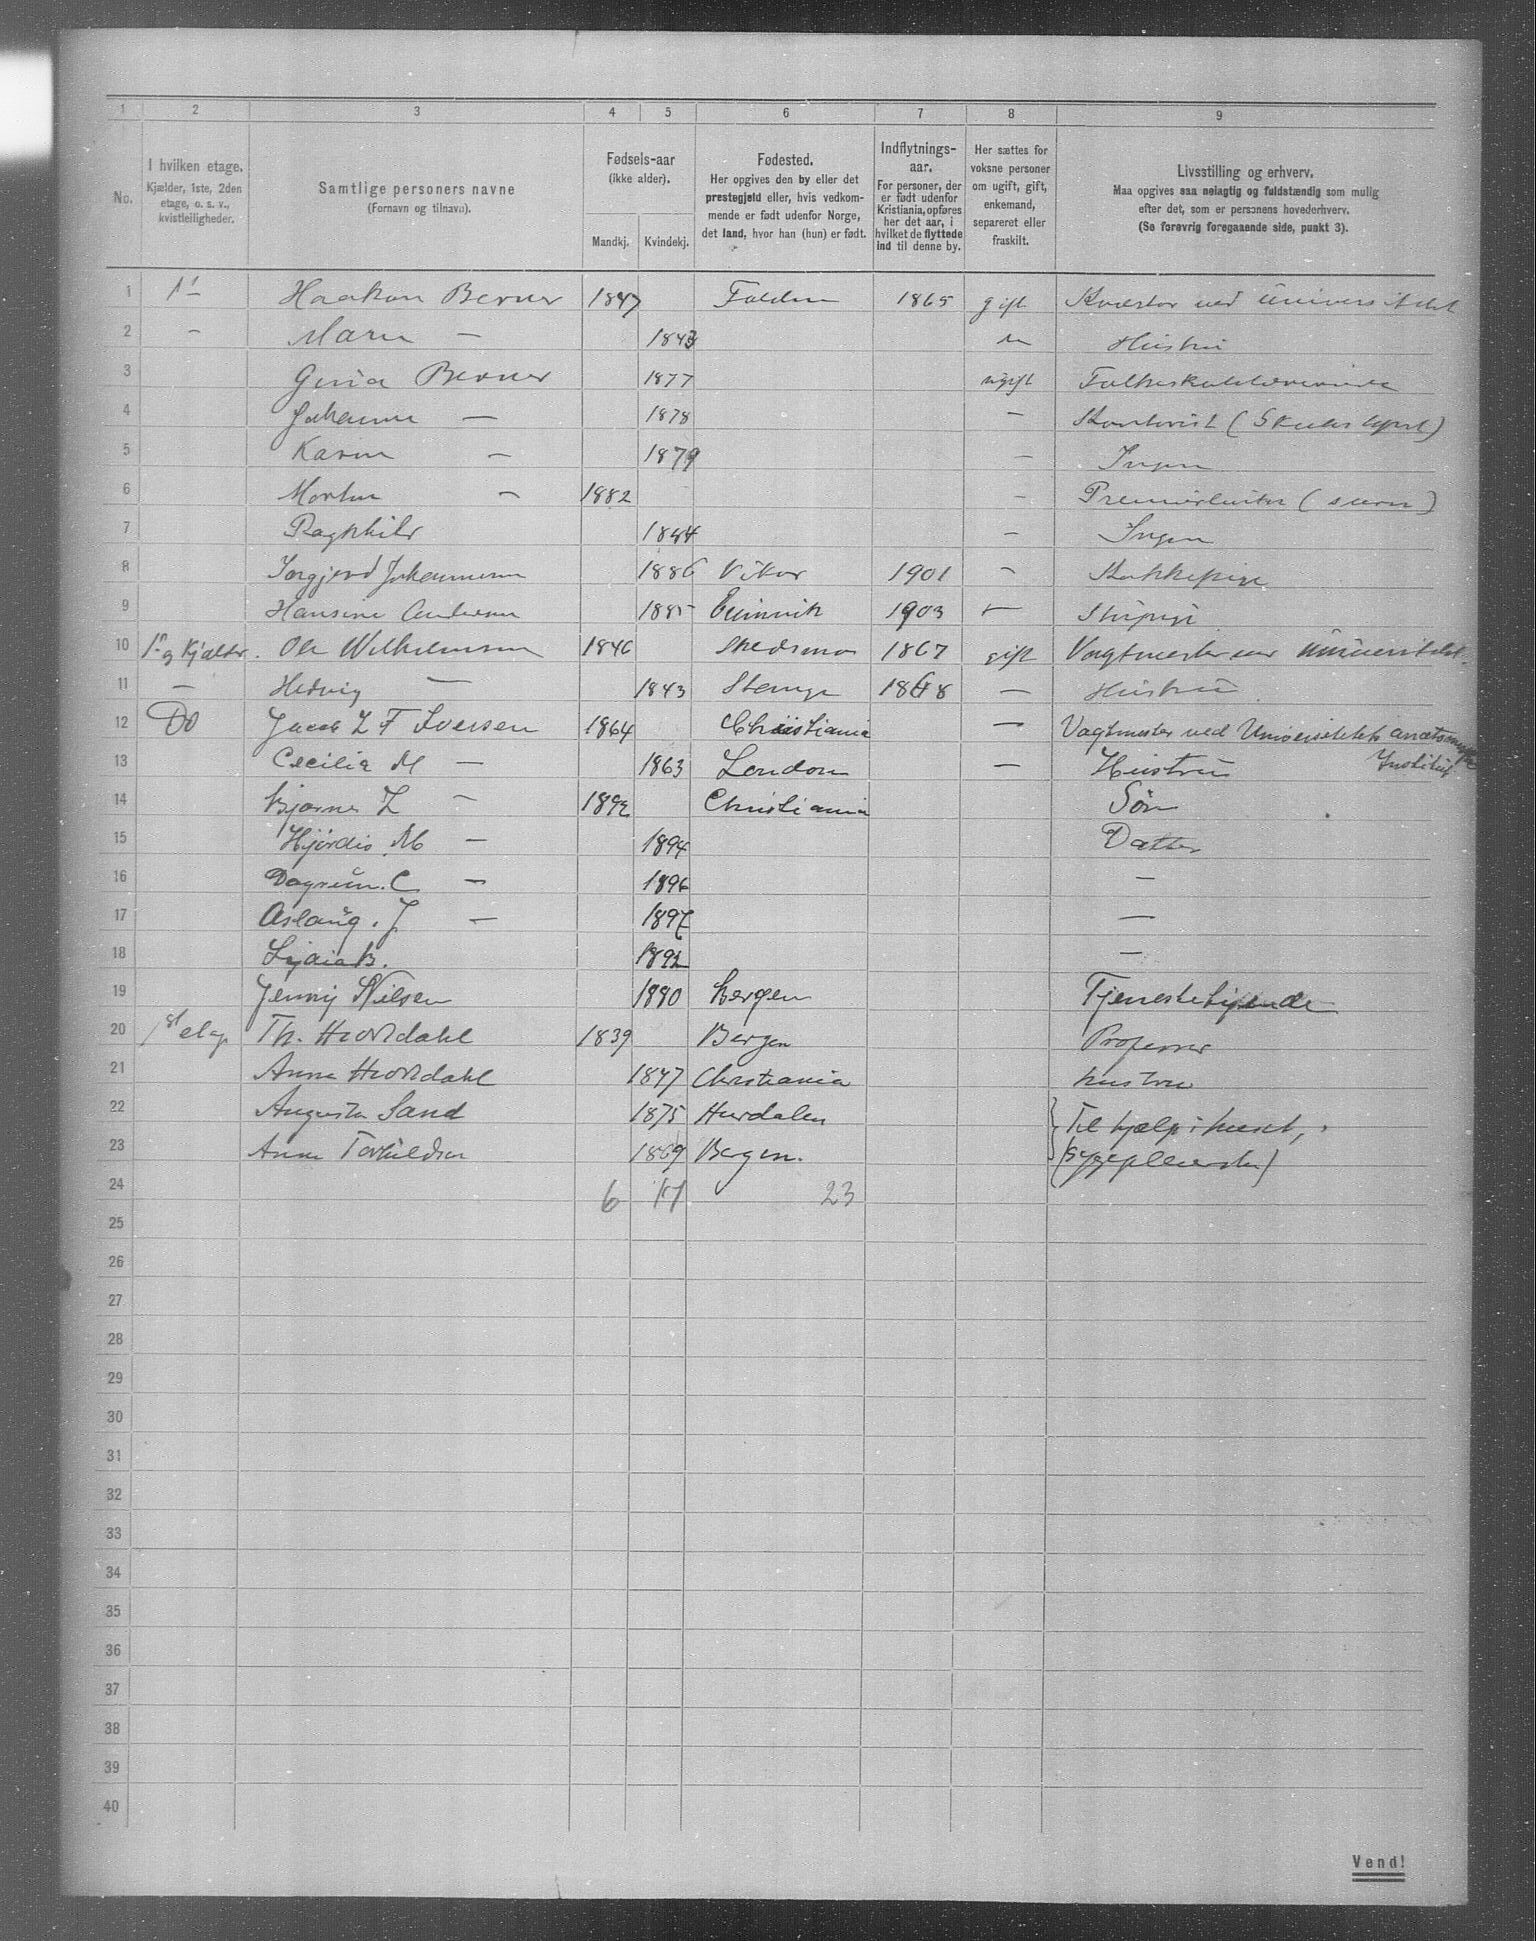 1 2 3 4 5 6 7 8 9
No.
I hvilken etage.
Kjælder, 1ste, 2den
etage, o. s. v.,
kvistleiligheder.
Samtlige personers navne
(Fornavn og tilnavn).
Fødsels-aar
(ikke alder).
Mandkj. Kvindekj.
Fødested.
Her opgives den by eller det
prestegjeld eller, hvis vedkom-
mende er født udenfor Norge,
det land, hvor han (hun) er født.
Indflytnings-
aar.
For personer, der
er født udenfor
Kristiania, opføres
her det aar, i
hvilket de flyttede
ind til denne by.
Her sættes for
voksne personer
om ugift, gift,
enkemand,
separeret eller
fraskilt.
Livsstilling og erhverv.
Maa opgives saa nøiagtig og fuldstændig som mulig
efter det, som er personens hovederhverv.
(Se forøvrig foregaaende side, punkt 3).
1 Haakon Berner 1847 1865 gift Kvæstor ved Universitetet
2 — — 1843 Hustru
3 Berner 1877 ugift Folkeskolelærerinde
4 — 1878 —
5 Karen — 1879 — Ingen
6 Morten — 1882 — Premierløitn
7 Ragnhild 1884 — Ingen
8 Johannesen 1886 Vikør 1901 — Kokkepige
9 Hansine Andersen 1885 1903 — Stuepige
10 1ste og Kjælder. Ole Wilhelmsen 1846 Skedsmo 1867 gift Vagtmester ved Universitetet.
11 — Hedvig — 1843 Stange 1868 — Hustru
12 Do Jacob L F Iversen 1864 Christiania — Vagtmester ved Universitetets anatomiske
Institut
13 Cecilia M — 1863 London — Hustru
14 Bjarne L — 1892 Christiania Søn
15 Hjørdis M — 1894 Datter
16 Dagrun. C — 1896 —
17 Aslaug. J — 1897 —
18 Lydia B. —
19 Jenny Nilsen 1880 Bergen Tjenestetyende
20 1st etage Th. Hiortdahl 1839 Bergen Professor
21 Anna Hiortdahl 1847 Christiania hustru
22 Augusta Sand 1875 Hurdalen Til hjælp i huset,
23 Anna Torkildsen 1869 Bergen. (sygepleierske)
24 6 17 23
25
26
27
28
29
30
31
32
33
34
35
36
37
38
39
40
Vend!